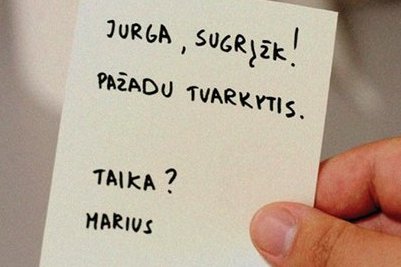 JURGA, SUGRĮŽK!
PAŽADU TVARKYTIS.
TAIKA?
MARIUS